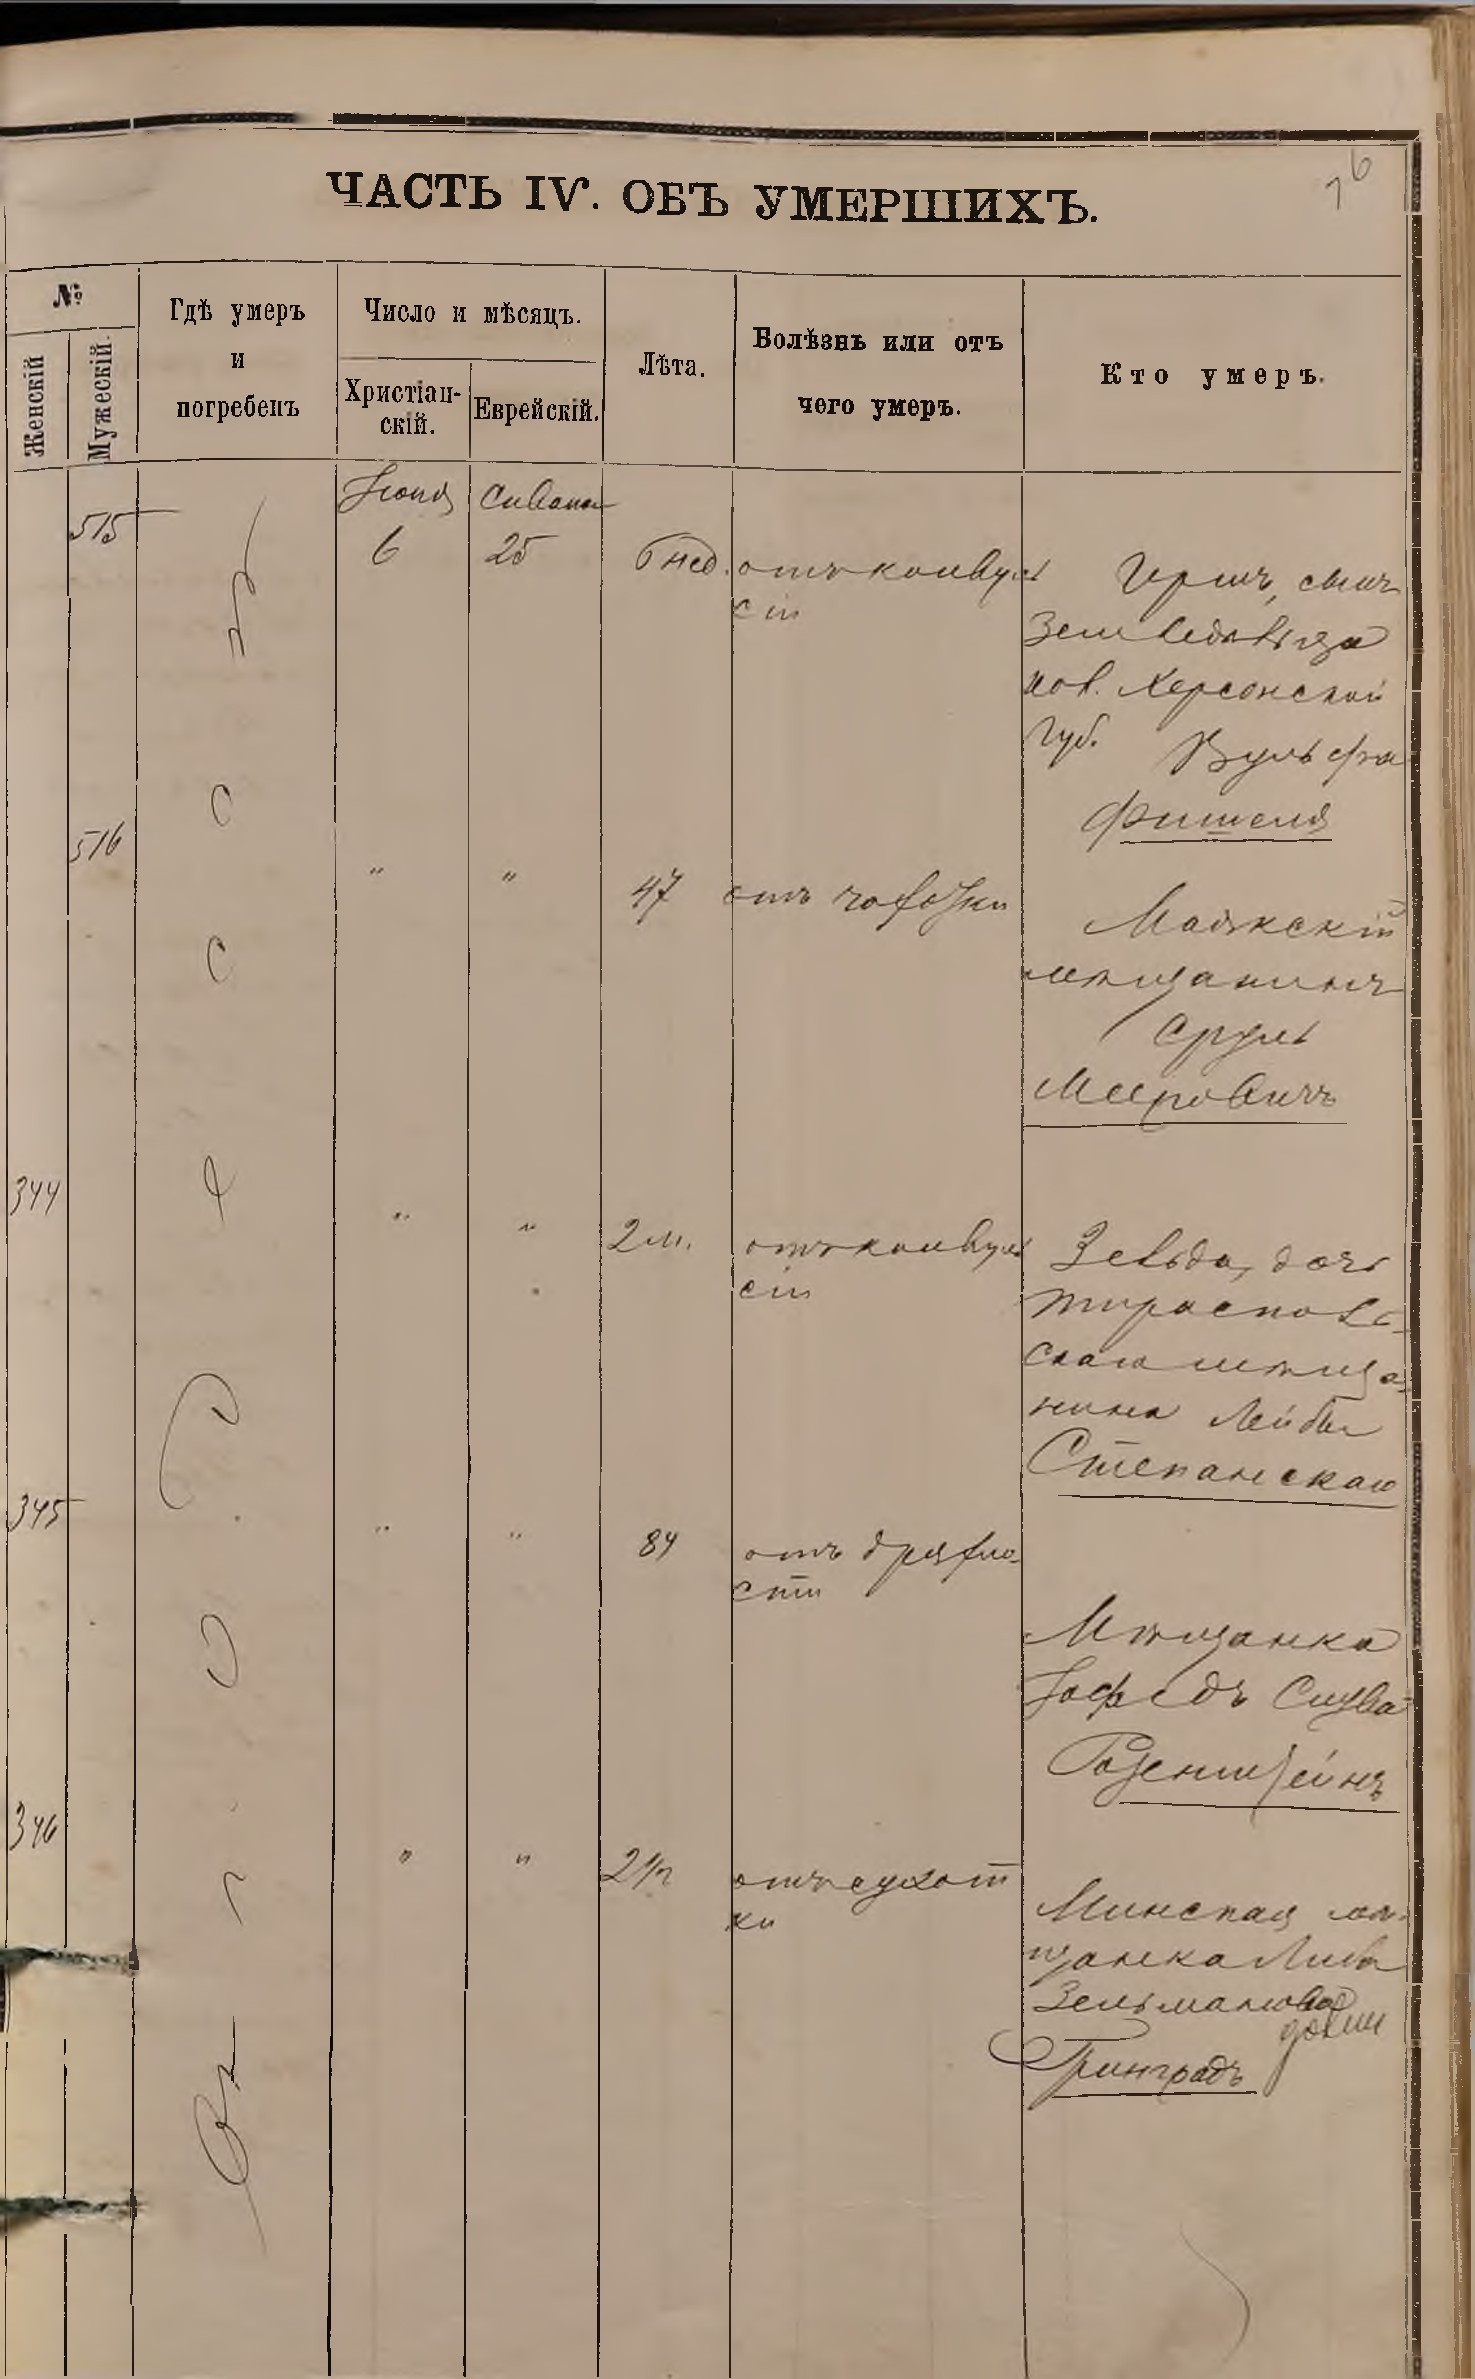 76
ЧАСТЬ IV. ОБЪ УМЕРШИХЪ.
№
Женскій
Мужескій.
Гдѣ умеръ
и
погребенъ
Число и мѣсяцъ.
Христіан-
скій.
Еврейскій.
Лѣта.
Болѣзнь или отъ
чего умеръ.
Кто умеръ.
Въ г. Одессѣ
Іюня
Сивана
515
6
25
6 нед.
отъ конвуль
сіи
Гершъ, сынъ
Земледѣльца
кол. Херсонской
Губ. Вульфа
Фишеля
516
"
"
47
отъ чахотки
Маякскій
мѣщанинъ
Сруль
Мееровичъ
344
"
"
2 м.
отъ конвуль
сіи
Зельда, дочь
тирасполь-
скаго мѣща-
нина Лейбы
Степанскаго
345
"
"
84
отъ дряхло-
сти
Мѣщанка
Розенштейнъ
346
"
"
2 1/2
отъ сухот
ки
Минская мѣ-
щанка Либа
Зельманова
дочь
Гринградъ